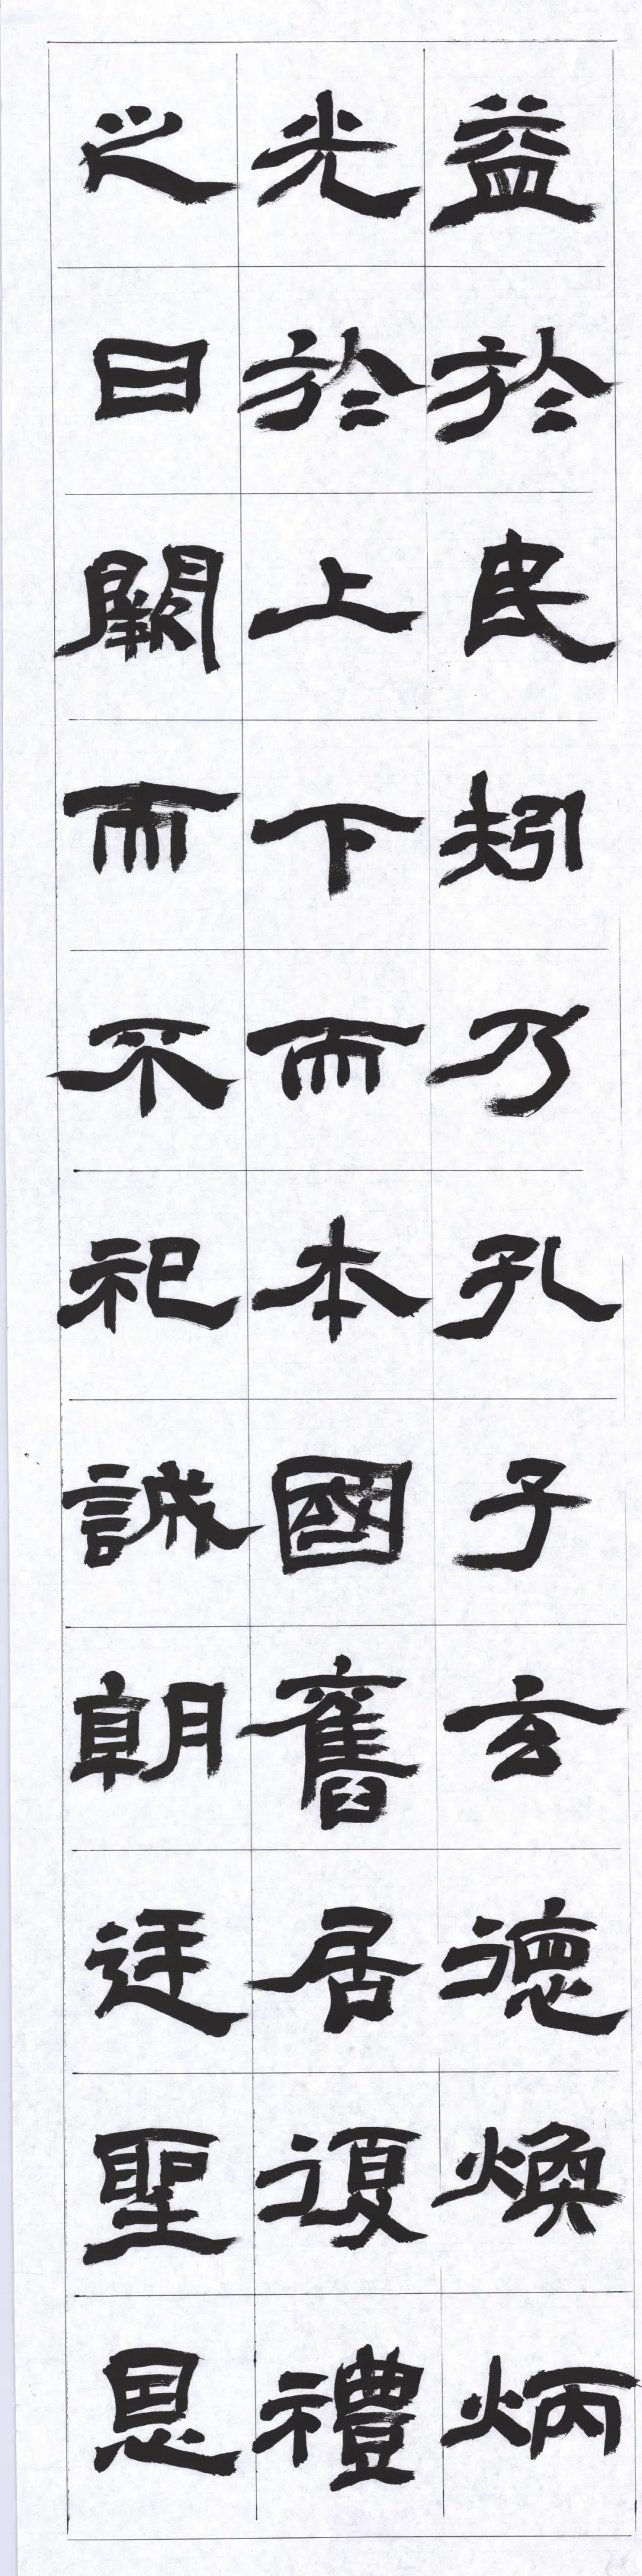 益於民矧乃孔子玄德煥炳
光於上下而本國舊居復禮
之日闕而不祀誠朝廷聖恩